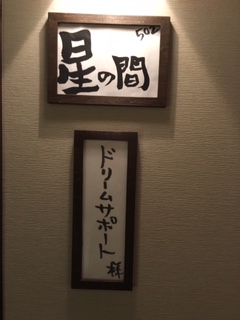 502
星の間
ドリームサポート様